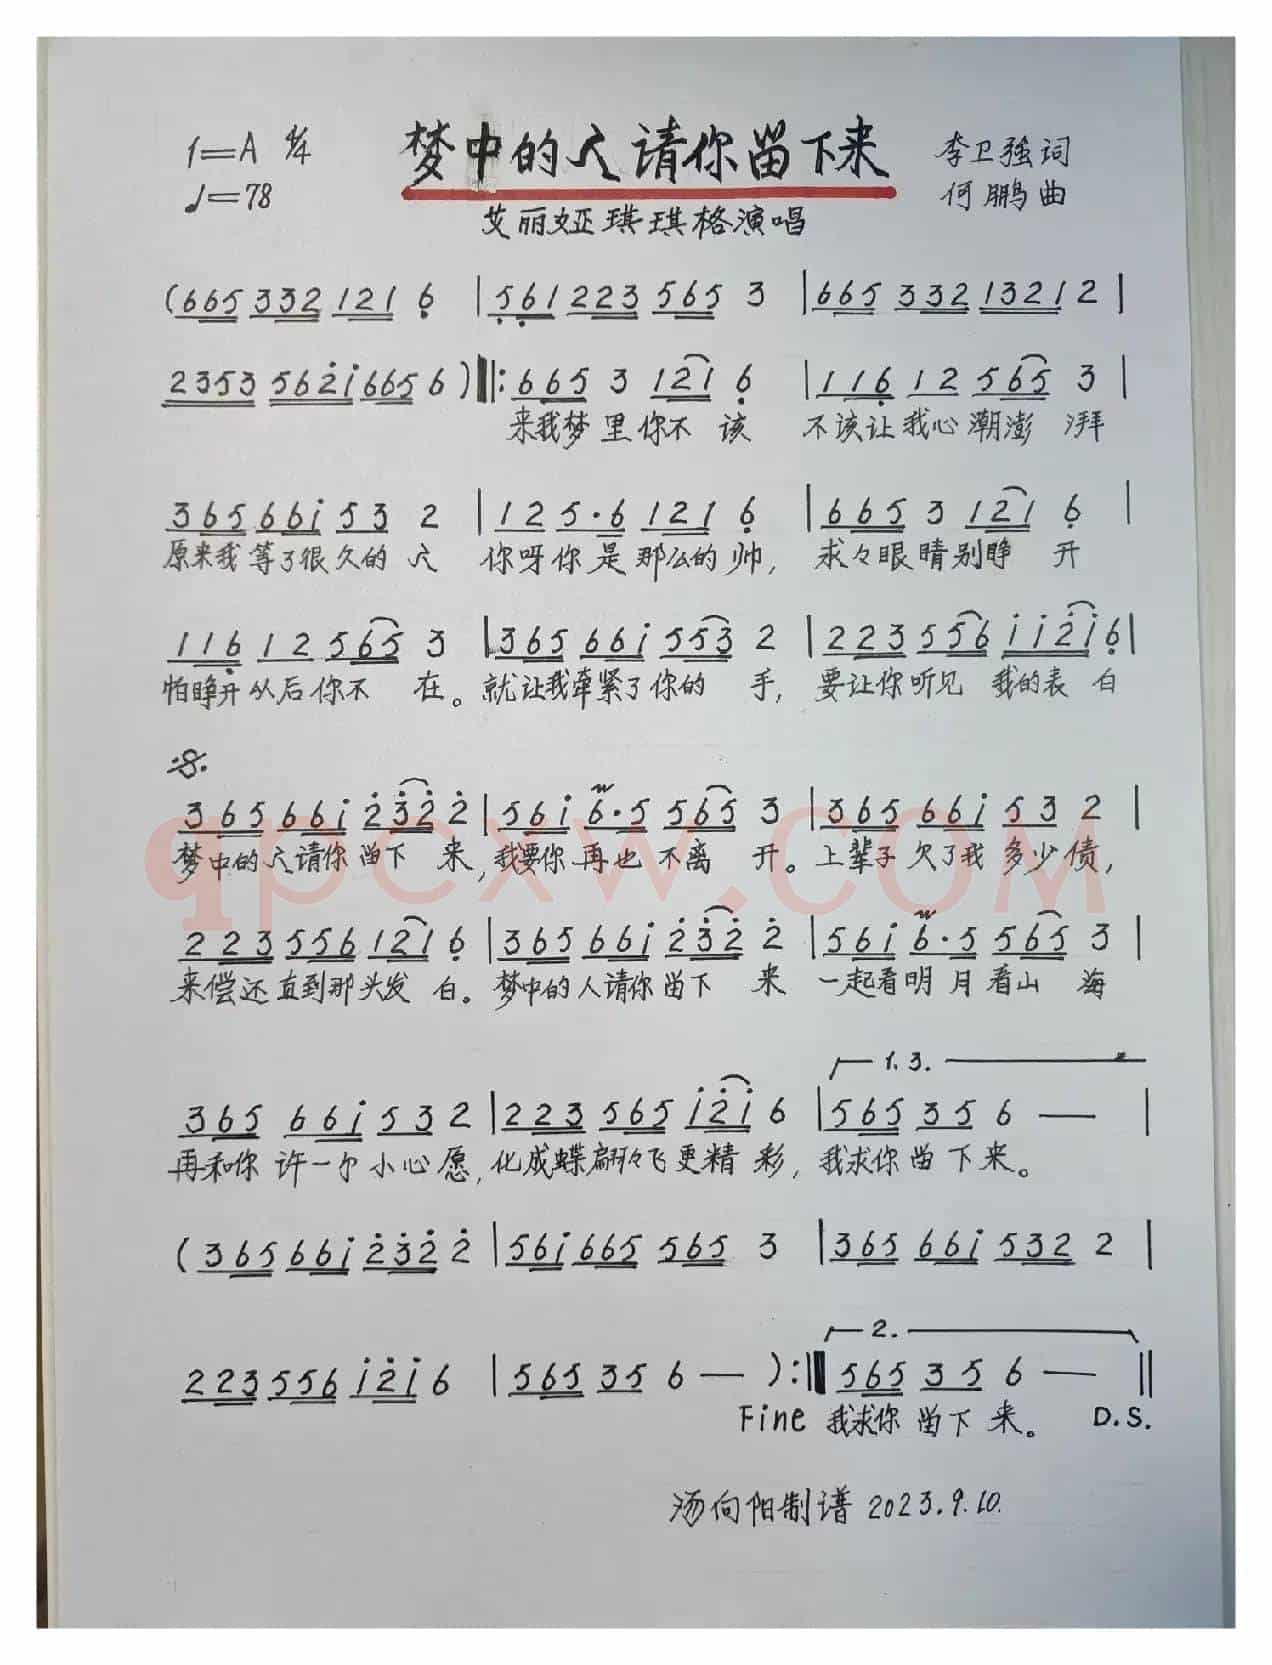 1=A 4/4 梦中的人请你留下来 李卫强词
♩=78 何鹏曲
艾丽娅琪琪格演唱
(665 332 121 6 | 561 223 565 3 | 665 332 1321 2 |
2353 562i 665 6 ) ‖: 665 3 121 6 | 116 12 565 3 |
来我梦里你不该 不该让我心潮澎湃
365 66i 53 2 | 12 5·6 121 6 | 665 3 121 6 |
原来我等了很久的人 你呀你是那么的帅, 求々眼睛别睁开
116 12 565 3 | 365 66i 553 2 | 223 556 ii2i 6 |
怕睁开从后你不在。就让我牵紧了你的手, 要让你听见我的表白
365 66i 232 2 | 56i 6·5 565 3 | 365 66i 53 2 |
梦中的人请你留下来,我要你再也不离开。上辈子欠了我多少债,
qpcxw.com
223 556 121 6 | 365 66i 232 2 | 56i 6·5 565 3 |
来偿还直到那头发白。梦中的人请你留下来 一起看明月看山海
1. 3.
365 66i 53 2 | 223 565 i2i 6 | 565 35 6 — |
再和你许一个小心愿,化成蝶翩々飞更精彩,我求你留下来。
( 365 66i 232 2 | 56i 665 565 3 | 365 66i 532 2 |
2.
223 556 i2i 6 | 565 35 6 — ) :‖ 565 35 6 — ‖
Fine 我求你留下来。 D.S.
汤向阳制谱 2023.9.10.